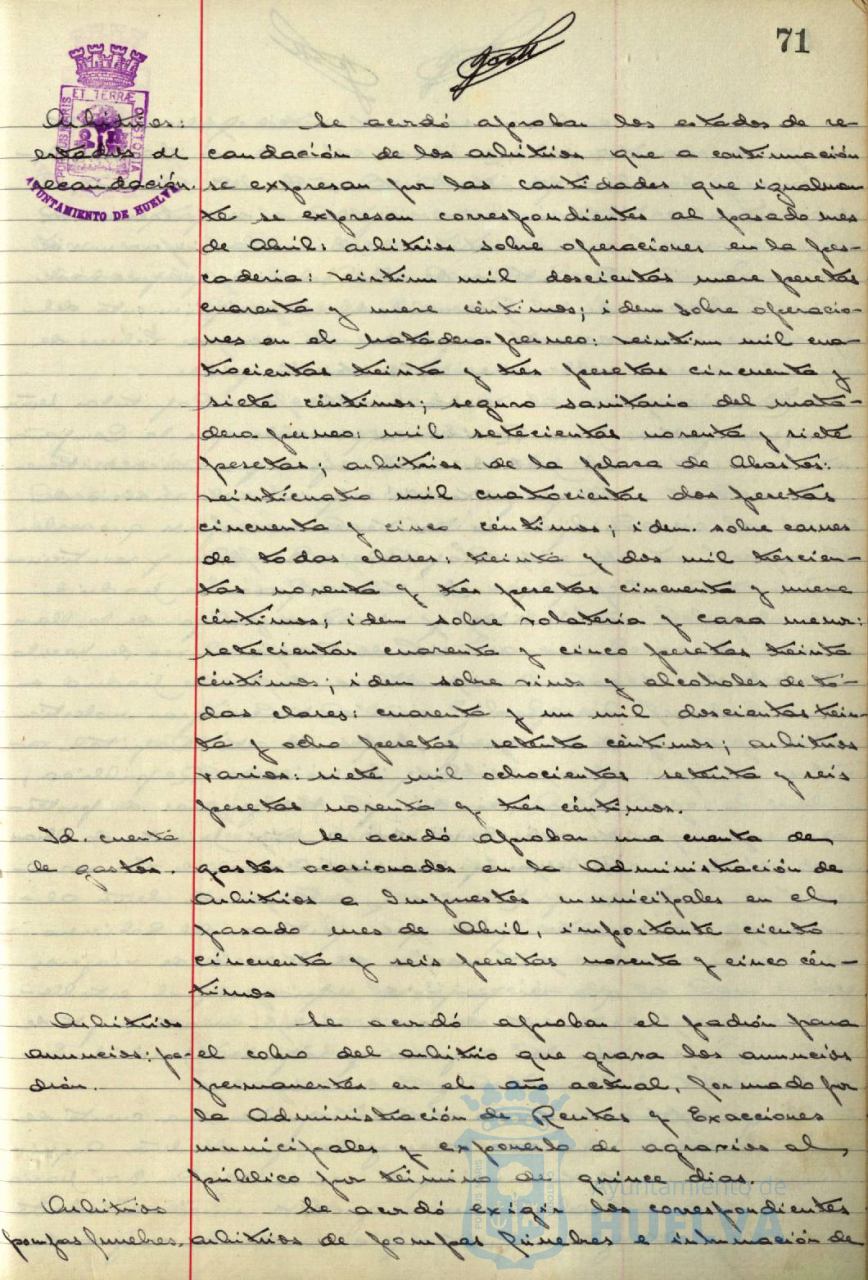 71
Arbitrios:
estados de
recaudación.
PORTUS MARIS
ET TERRÆ
CUSTODIA
AYUNTAMIENTO DE HUELVA
Se acordó aprobar los estados de re-
caudación de los arbitrios que a continuación
se expresan por las cantidades que igualmen
te se expresan correspondientes al pasado mes
de Abril: arbitrios sobre operaciones en la pes-
caderia: veintiun mil doscientas nueve pesetas
cuarenta y nueve céntimos; idem sobre operacio-
nes en el matadero perneo: veintiun mil cua-
trocientas treinta y tres pesetas cincuenta y
siete céntimos; seguro sanitario del mata-
dero perneo: mil setecientas noventa y siete
pesetas; arbitrios de la plaza de Abastos:
veinticuatro mil cuatrocientas dos pesetas
cincuenta y cinco céntimos; idem. sobre carnes
de todas clases: treinta y dos mil trescien-
tas noventa y tres pesetas cincuenta y nueve
céntimos; idem sobre volateria y caza menor:
setecientas cuarenta y cinco pesetas treinta
céntimos; idem sobre vinos y alcoholes de to-
das clases: cuarenta y un mil doscientas trein-
ta y ocho pesetas setenta céntimos; arbitrios
varios: siete mil ochocientas setenta y seis
pesetas noventa y tres céntimos.
Id. cuenta
de gastos.
Se acordó aprobar una cuenta de
gastos ocasionados en la Administración de
Arbitrios e Impuestos municipales en el
pasado mes de Abril, importante ciento
cincuenta y seis pesetas noventa y cinco cén-
timos
Arbitrios
anuncios: pa-
drón.
Se acordó aprobar el padrón para
el cobro del arbitrio que grava los anuncios
permanentes en el año actual, formado por
la Administración de Rentas y Exacciones
municipales y exponerlo de agravios al
público por término de quince dias.
Arbitrios
pompas funebres.
Se acordó exigir los correspondientes
arbitrios de pompas fúnebres e inhumación de
Ayuntamiento de
HUELVA